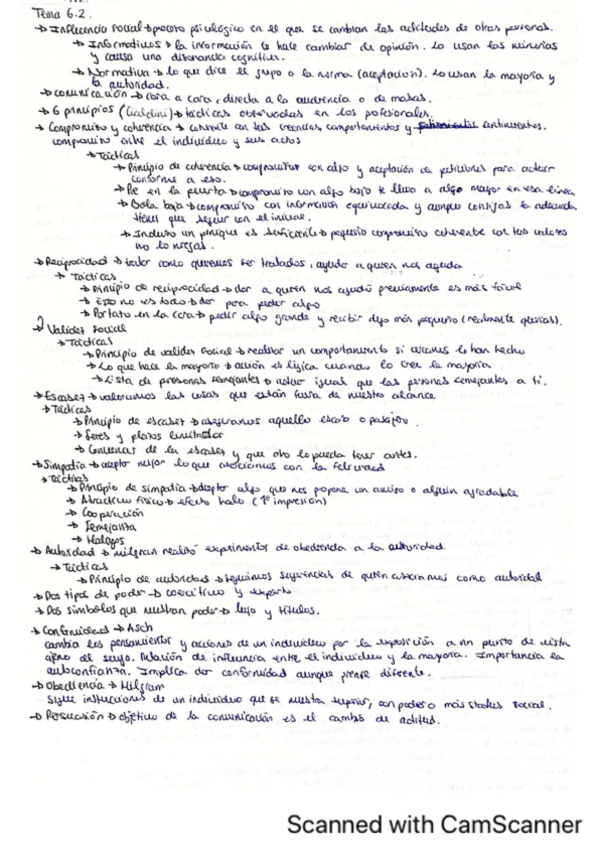 Tema 6.2.
→ Influencia social → proceso psicológico en el que se cambian las actitudes de otras personas.
→ Informativos → la información le hace cambiar de opinión. Lo usan las minorías
y causa una disonancia cognitiva.
→ Normativa → lo que dice el grupo o la norma (aceptación). Lo usan la mayoría y
la autoridad.
→ comunicación → cara a cara, directa a la audiencia o de masas.
→ 6 principios (Cialdini) → tácticas observadas en los profesionales.
→ Compromiso y coherencia → coherente con tus creencias, comportamientos y
compromiso entre el individuo y sus actos
→ Tácticas
→ Principio de coherencia → comprometerse con algo y aceptación de peticiones para actuar
conforme a eso.
→ Pie en la puerta → compromiso con algo bajo te lleva a algo mayor en esa línea
→ Bola baja → compromiso con información equivocada y aunque contijas la adecuada
tienes que seguir con el inicial.
→ Incluso un penique es suficiente → pequeño compromiso coherente con tus valores
no lo niegas.
→ Reciprocidad → tratar como queremos ser tratados, ayudar a quien nos ayuda
→ Tácticas
→ Principio de reciprocidad → dar a quien nos ayudó previamente es más fácil
→ Esto no es todo → dar para pedir algo
→ Portazo en la cara → pedir algo grande y recibir algo más pequeño (realmente querías).
→ Validez social
→ Tácticas
→ Principio de validez social → realizar un comportamiento si otros lo han hecho
→ Lo que hace la mayoría → acción es lógica cuando lo cree la mayoría
→ Lista de personas semejantes → actuar igual que las personas semejantes a ti.
→ Escasez → valoramos las cosas que están fuera de nuestro alcance
→ Tácticas
→ Principio de escasez → aseguramos aquello escaso o pasajero
→ Series y plazos limitados
→ Convencer de la escasez y que otro lo pueda tener antes.
→ Simpatía → aceptar mejor lo que asociamos con la felicidad
→ Tácticas
→ Principio de simpatía → aceptar algo que nos propone un amigo o alguien agradable
→ Atractivo físico → efecto halo (1ª impresión)
→ Cooperación
→ Semejanza
→ Halagos
→ Autoridad → Milgram realizó experimentos de obediencia a la autoridad.
→ Tácticas
→ Principio de autoridad → seguimos sugerencias de quien asociamos como autoridad
→ Dos tipos de poder → coercitivo y experto
→ Dos símbolos que muestran poder → lujo y títulos.
→ Conformidad → Asch
cambia los pensamientos y acciones de un individuo por la exposición a un punto de vista
ajeno al suyo. Relación de influencia entre el individuo y la mayoría. Importancia la
autoconfianza. Implica dar conformidad aunque piense diferente.
→ Obediencia → Milgram
Sigue instrucciones de un individuo que se muestra superior, con poder o más status social.
→ Persuasión → objetivo de la comunicación es el cambio de actitud.
Scanned with CamScanner